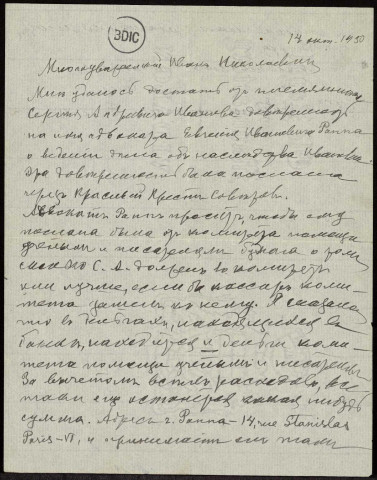 BDIC
14 окт. 1950
Многоуважаемый Иван Николаевич
Мне удалось достать от племянника
Сергея Андреевича Иванова доверенность
на имя адвоката Евгения Ивановича Раппа
о ведении дела об наследстве Иванова.
Эта доверенность была послана
через Красный Крест Советов.
Адвокат Рапп просит, чтобы ему
послана была от комитета помощи
ученым и писателям бумага о том
С. А. должен комитету
или лучше, если бы кассир коми-
тета зашел к нему. Я сказала
что в деньгах, находящихся в
банке, находятся и деньги коми-
тета помощи ученым и писателям
За вычетом всех расходов, все
таки еще останется какая нибудь
сумма. Адрес г. Раппа – 14, rue Stanislas
Paris – VI, и принимает он там